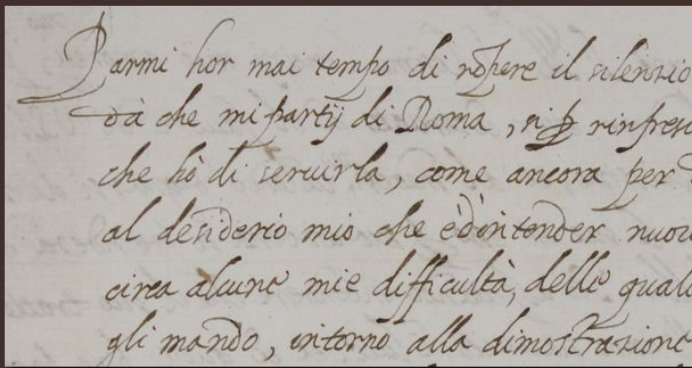 Parmi hor mai tempo di ropere il silenzio
dà che mi partij di Roma, si ꝑ rinfresc
che hò di seruirla, come ancora per
al desiderio mio che è d'intender nuou
circa alcune mie difficultà, delle qual
gli mando, intorno alla dimostrazione